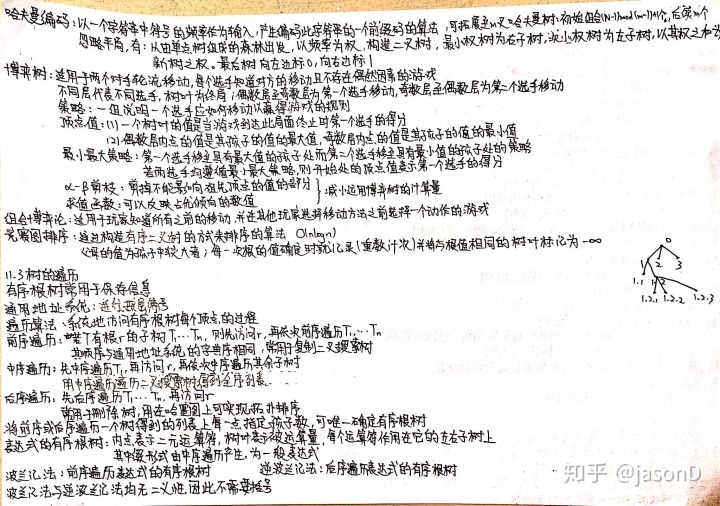 哈夫曼编码:以一个字符串中符号的频率作为输入,产生编码此字符串的一个前缀码的算法,可拓展至m叉哈夫曼树:初始组合(N-1)mod(m-1)+1个,后第m个
忽略平局,有:从由单点树组成的森林出发,以频率为权,构造二叉树,最小权树为右子树,次小权树为左子树,以其权之和为
新树之权。最后树向左边标0,向右边标1
博弈树:适用于两个对手轮流移动,每个选手知道对方的移动且不存在偶然因素的游戏
不同层代表不同选手,树叶为终局;偶数层至奇数层为第一个选手移动,奇数层至偶数层为第二个选手移动
策略:一组说明一个选手应如何移动以赢得游戏的规则
顶点值:(1)一个树叶的值是当游戏到达此局面终止时第一个选手的得分
(2)偶数层内点的值是其孩子的值的最大值,奇数层内点的值是其孩子的值的最小值
最小最大策略:第一个选手移至具有最大值的孩子处而第二个选手移至具有最小值的孩子处的策略
若两选手均遵循最小最大策略,则开始处的顶点值表示第一个选手的得分
α-β剪枝:剪掉不能影响祖先顶点的值的部分
求值函数:可以反映占优倾向的数值 }:减小运用博弈树的计算量
组合博弈论:适用于玩家知道所有之前的移动,并在其他玩家选择移动方法之前选择一个动作的游戏
竞赛图排序:通过构造有序二叉树的方式来排序的算法 O(nlogn)
父母的值为孩子中较大者;每一次根的值确定时就记录(重数计次)并将与根值相同的树叶标记为-∞
11.3树的遍历
有序根树常用于保存信息
通用地址系统:逐分层符号
遍历算法:系统地访问有序根树每个顶点的过程
前序遍历:若T有根r的子树T₁…Tₙ,则先访问r,再依次前序遍历T₁…Tₙ
其顺序与通用地址系统的字典序相同,常用于复制二叉搜索树
中序遍历:先中序遍历T₁,再访问r,再依次中序遍历其余子树
用中序遍历遍历二叉搜索树得到全序列表
后序遍历:先后序遍历T₁…Tₙ,再访问r
常用于删除树,用在哈塞图上可实现拓扑排序
将前序或后序遍历一个树得到的列表上每一点指定孩子数,可唯一确定有序根树
表达式的有序根树:内点表示二元运算符,树叶表示被运算量,每个运算符作用在它的左右子树上
其中缀形式由中序遍历产生,为一般表达式
波兰记法:前序遍历表达式的有序根树 逆波兰记法:后序遍历表达式的有序根树
波兰记法与逆波兰记法均无二义性,因此不需要括号
0
1 2 3
1.1 1.2
1.2.1 1.2.2 1.2.3
知乎 @jasonD